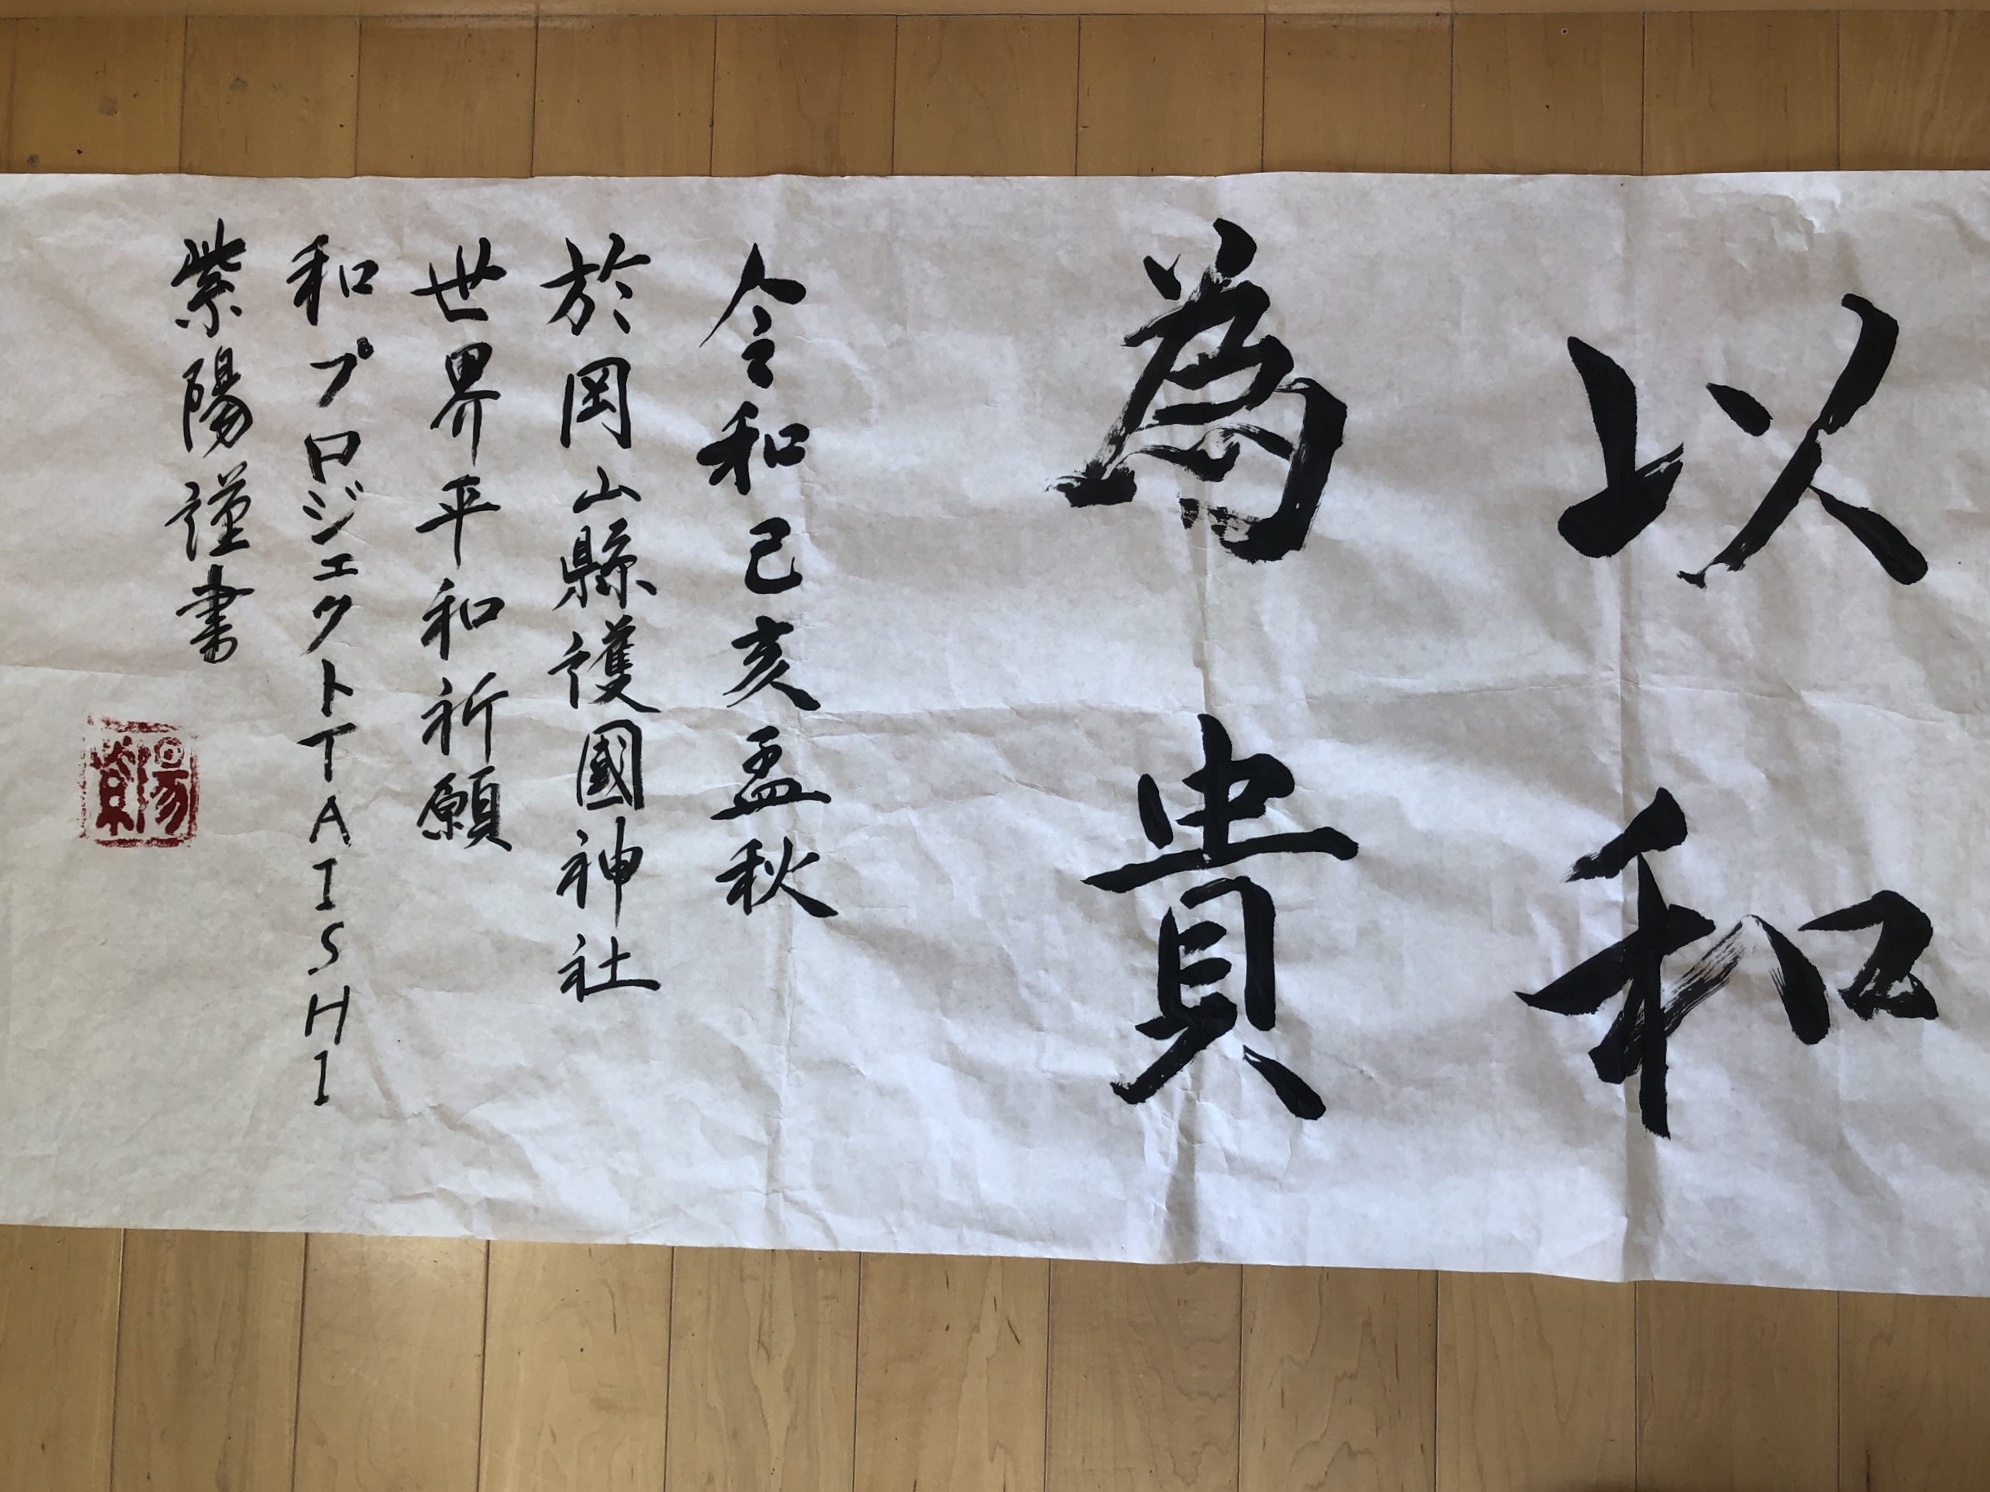 以和
為貴
令和己亥孟秋
於岡山縣護國神社
世界平和祈願
和プロジェクトTAISHI
紫陽謹書
紫陽